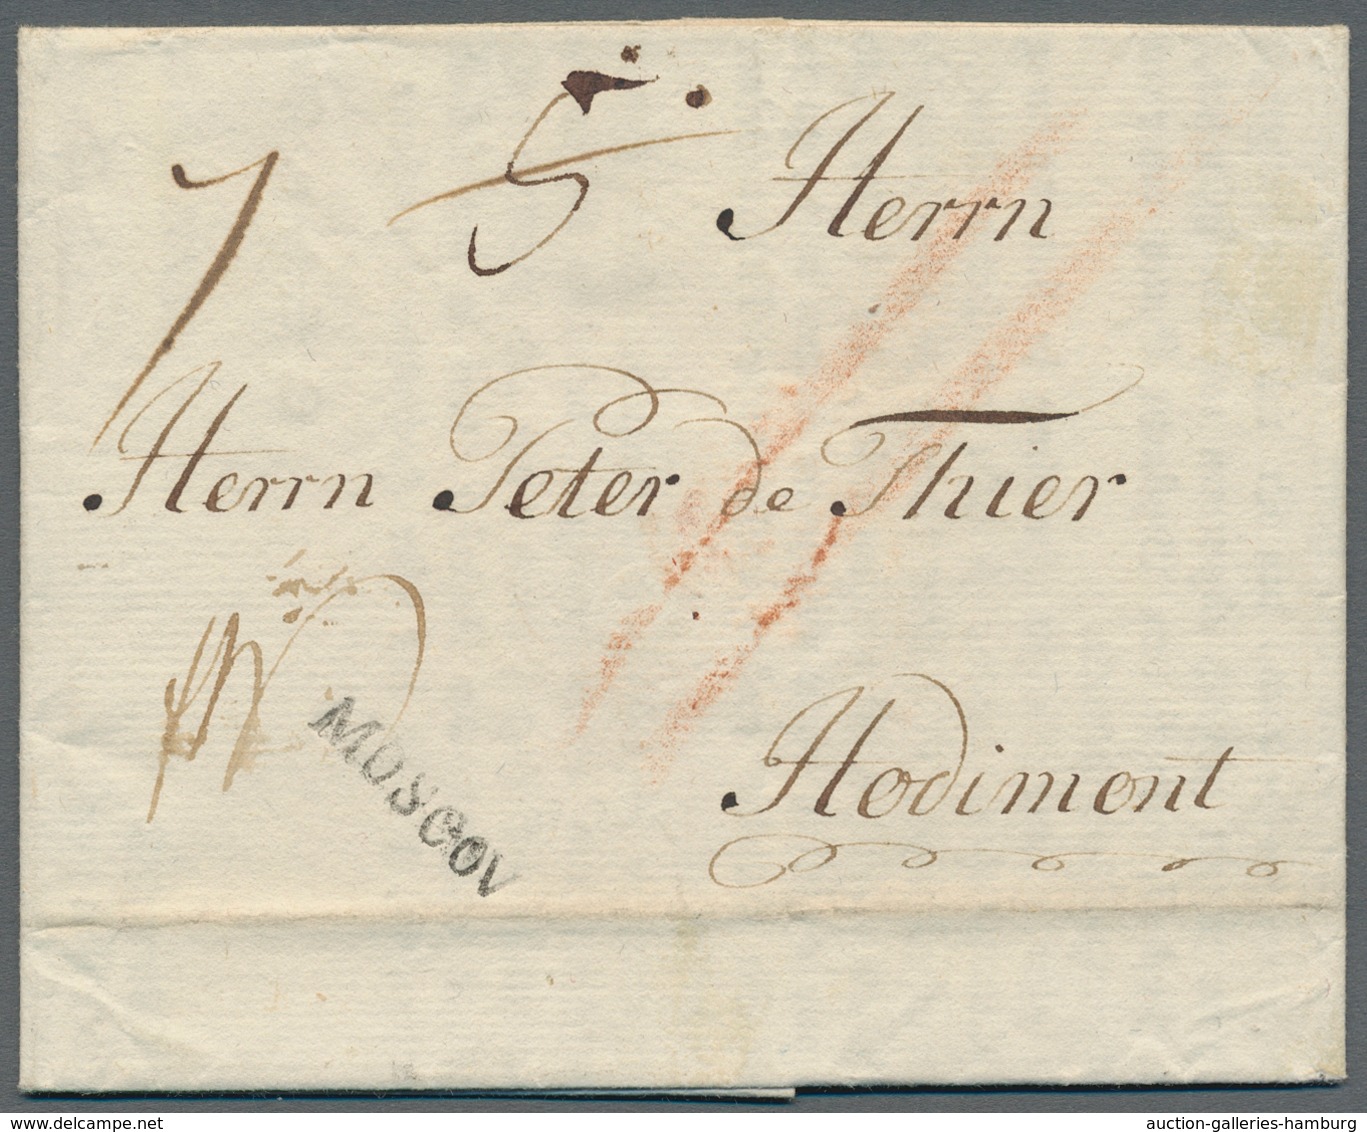 7 5
Herrn
Herrn Peter de Thier
MOSCOV
Hodimont
auction-galleries-hamburg